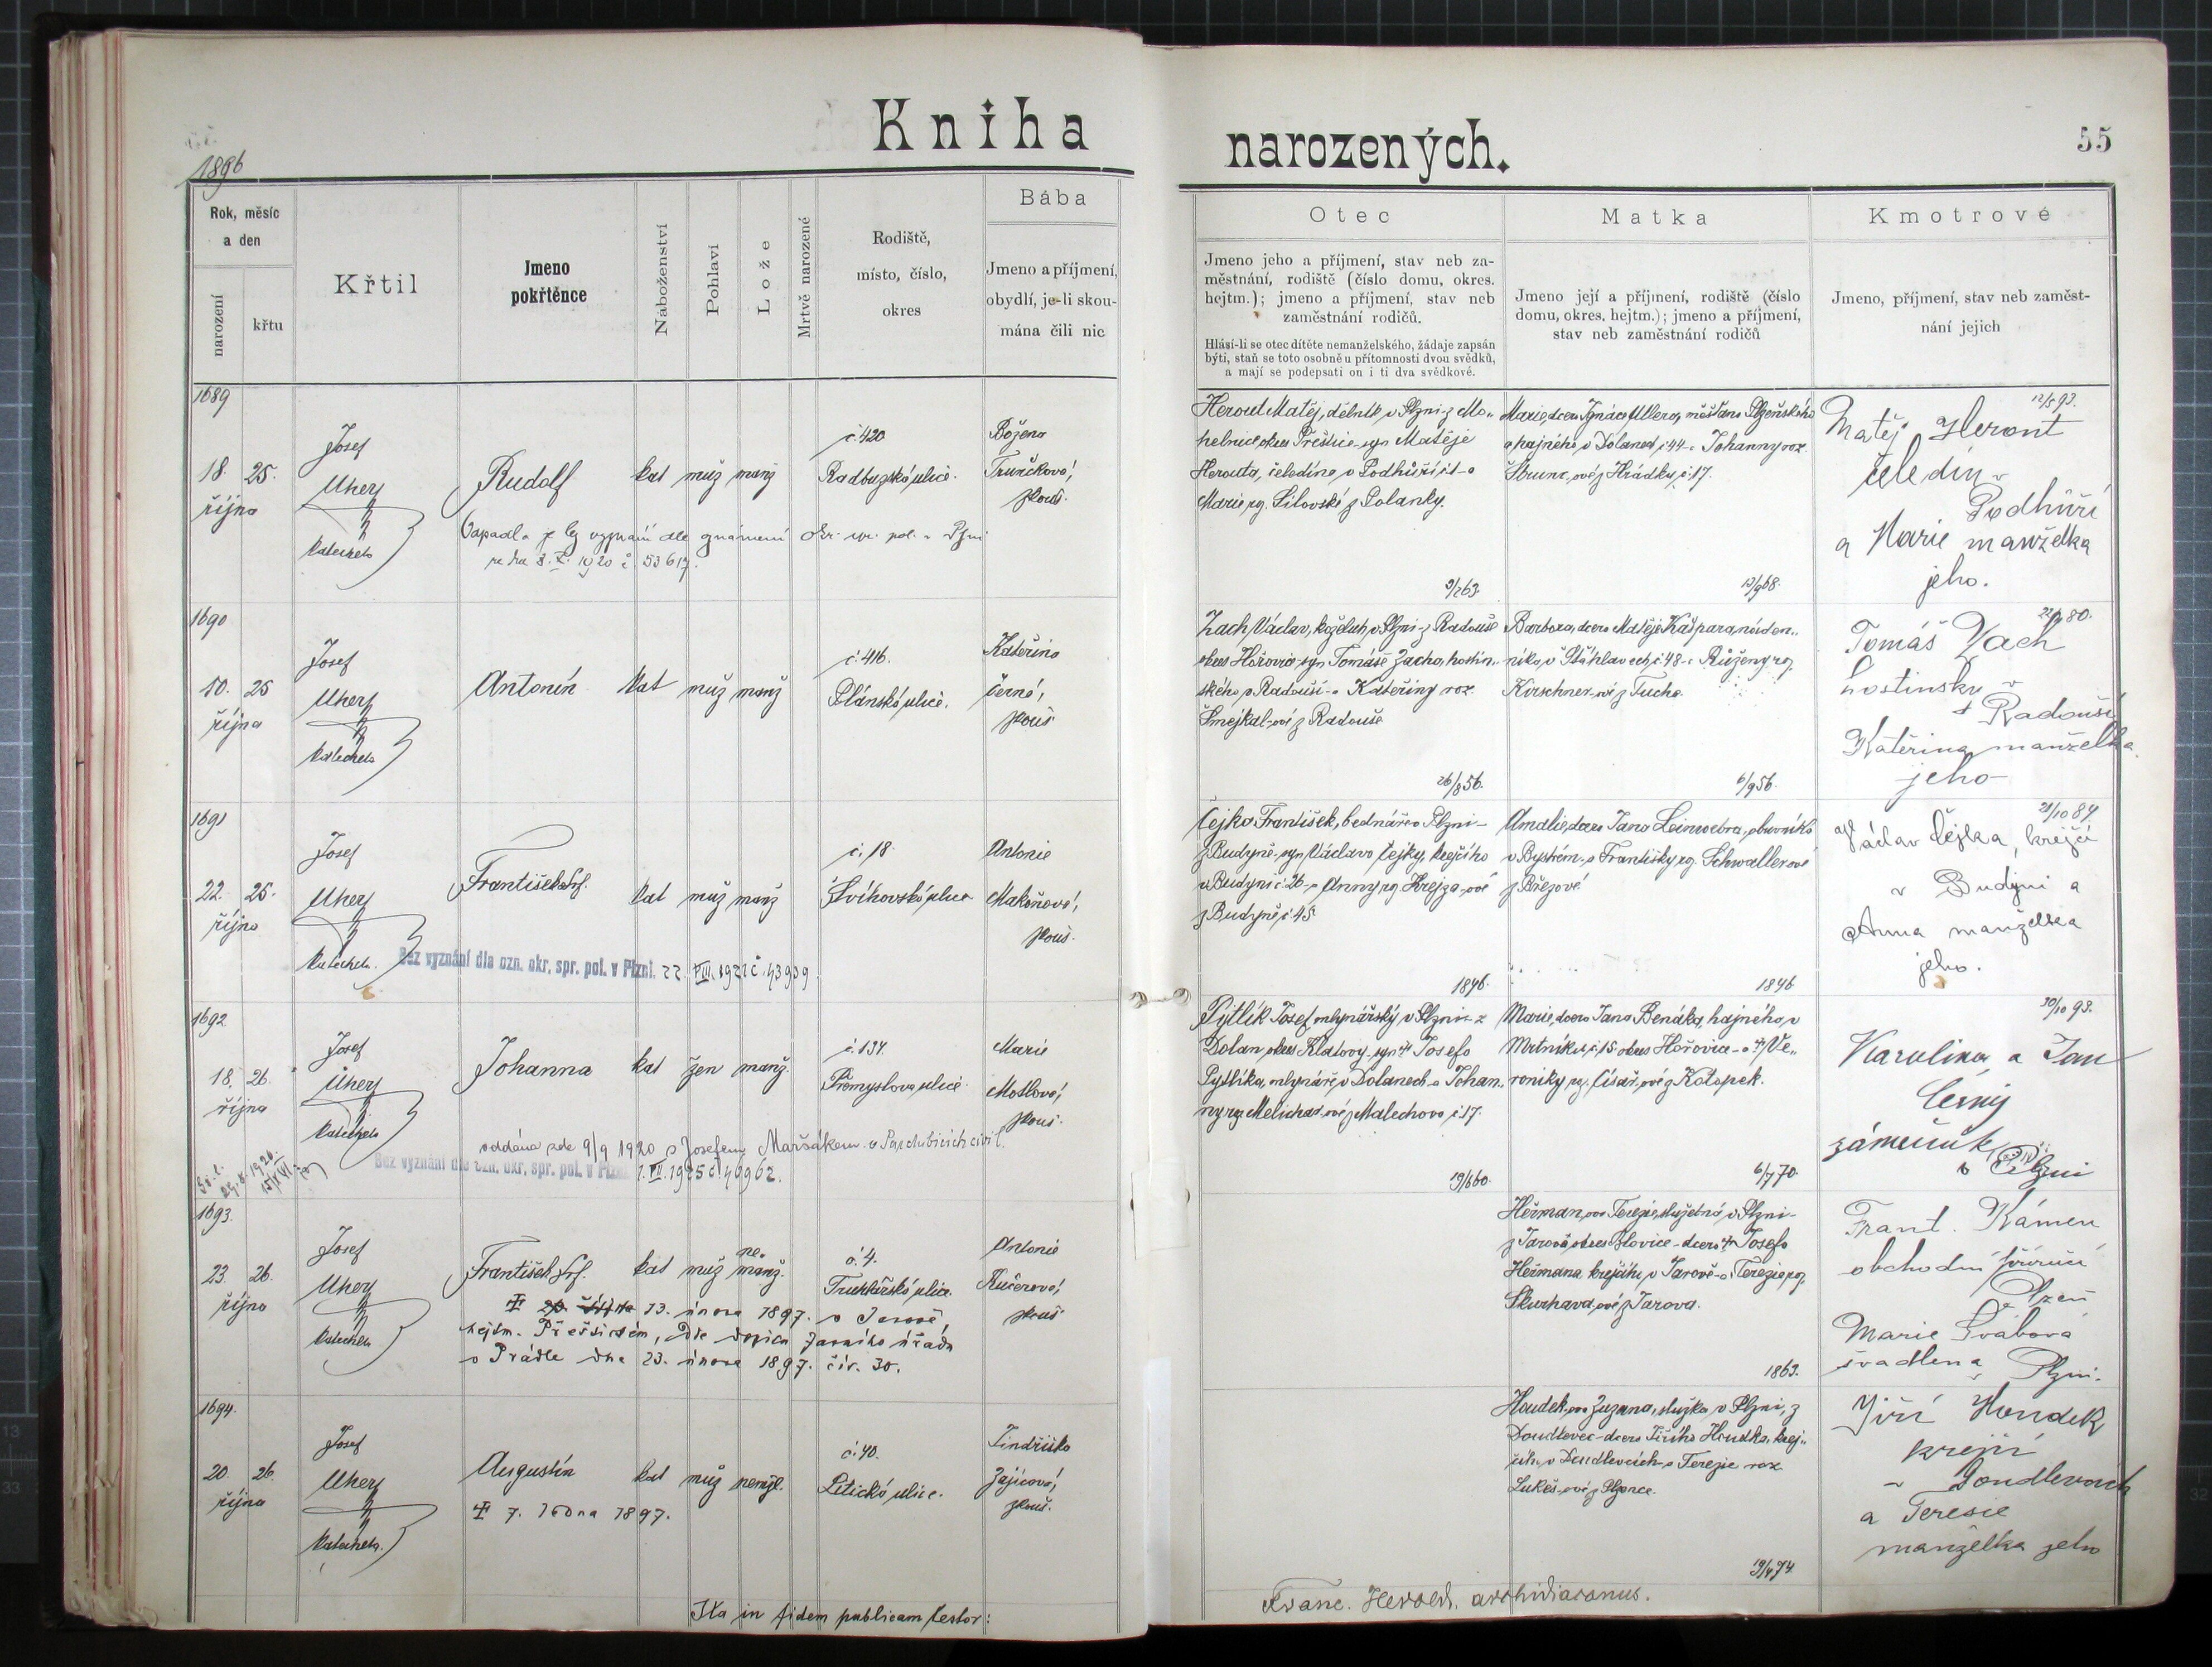 Kniha
narozených.
55
1896
Rok, měsíc
a den
narození
křtu
Křtil
Jmeno
pokřtěnce
Náboženství
Pohlaví
Lože
Mrtvě narozené
Rodiště,
místo, číslo,
okres
Bába
Jmeno a příjmení,
obydlí, je-li skou-
mána čili nic
Otec
Jmeno jeho a příjmení, stav neb za-
městnání, rodiště (číslo domu, okres.
hejtm.); jmeno a příjmení, stav neb
zaměstnání rodičů.
Hlásí-li se otec dítěte nemanželského, žádaje zapsán
býti, staň se toto osobně u přítomnosti dvou svědků,
a mají se podepsati on i ti dva svědkové.
Matka
Jmeno její a příjmení, rodiště (číslo
domu, okres. hejtm.); jmeno a příjmení,
stav neb zaměstnání rodičů
Kmotrové
Jmeno, příjmení, stav neb zaměst-
nání jejich
1689
18. 25.
října
Josef
Uherj
katecheta
Rudolf
kat muž manž
č. 420
Radbuzská ulice.
Božena
Trunečková,
zkouš.
ze dne 8. X. 1920 č. 53617.
Herout Matěj, dělník v Plzni z Mo„
helnice okres Přeštice syn Matěje
Herouta, čeledína v Podhůří č. 1 a
Marie rz. Silovské z Polanky.
9/2 63.
Marie, dcera Ignáce Ullera, měšťana Plzeňského
a hajného v Dolanech č. 44 a Johanny roz.
Štrunc-ové z Hrádku č. 17.
13/9 68.
12/5 93.
Matěj Heront
čeledín v
Podhůří
a Marie manželka
jeho.
1690
10. 25
října
Josef
Uherj
katecheta
Antonín
kat muž manž
č. 416.
Plánská ulice.
Kateřina
Černá,
zkouš
Zach Václav, koželuh v Plzni z Radouše
okres Hořovic syn Tomáše Zacha, hostin„
ského v Radouši a Kateřiny roz.
Šmejkal-ové z Radouše
26/8 56.
Barbora, dcera Matěje Kašpara, náden„
níka, v Šťáhlavech č. 48 a Růženy rz.
Kirschner-ové z Tucho.
6/9 56.
Tomáš Zach
hostinsky v
Radouši
Kateřina manželka
jeho
1691
22. 25.
října
Josef
Uherj
katecheta.
František Srf.
kat muž manž
č. 18
Švihovská ulice
Antonie
Makoňová,
zkouš.
Bez vyznání dle ozn. okr. spr. pol. v Plzni. 22 VIII. 1921 č. 43909
Čejka František, bednář v Plzni
z Budyně, syn Václava Čejky, krejčího
v Budyni č. 26 a Anny rz. Krejza-ové
z Budyně č. 45.
1846.
Amalie, dcera Jana Leinwebra, obuvníka
v Bystrém a Františky rz. Schwallerové
z Březové
1846
28/10 84.
Václav Čejka, krejčí
v Budyni a
Anna manželka
jeho.
1692
18. 26.
října
Josef
Uherj
katecheta
Johanna
kat žen manž.
č. 134.
Přemyslova ulice
Marie
Motlová,
zkouš.
oddána zde 9/9 1920 s Josefem Maršákem v Pardubicích civil.
Bez vyznání dle ozn. okr. spr. pol. v Plzni 1. VII. 1925 č. 46962.
Pytlík Josef mlynářský v Plzni z
Dolan okres Klatovy syn Josefa
Pytlíka, mlynáře v Dolanech a Johan„
ny rz. Melichar-ové z Malechova č. 17.
19/6 60.
Marie, dcera Jana Benáka, hajného v
Mrtníku č. 15 okres Hořovice a Ve„
roniky rz. Císař-ové z Kotopek.
6/7 70.
30/10 93.
Karolina a Jan
Černý
zámečník
v Plzni
1693.
23. 26.
října
Josef
Uherj
katecheta
František Srf.
kat muž ne-
manž.
č. 4.
Truhlářská ulice.
Antonie
Kučerová,
zkouš
13. února 1897. v Jarově,
hejtm. Přeštickém, dle dopisu farního úřadu
v Prádle dne 23. února 1897. čís. 30.
Heřman-ova Terezie, služebná v Plzni
z Jarova okres Blovice dcera Josefa
Heřmana krejčího v Jarově a Terezie rz.
Skuchavá-ové z Jarova.
1863.
Frant. Kámen
obchodní příručí
v Plzeň
Marie Švábová
švadlena v Plzni.
1694.
20. 26.
října
Josef
Uherj
katecheta.
Augustin
kat muž nemžl.
č. 40.
Petická ulice.
Jindřiška
Zajícová,
zkouš.
7. ledna 1897.
Houdek-ova Zuzana, služka v Plzni, z
Doudlevec dcera Jiřího Houdka, krej„
čího v Doudlevcích a Terezie roz.
Lukeš-ové z Plzence.
19/4 74.
Jiří Houdek
krejčí
v Doudlevcích
a Teresie
manželka jeho
Ita in fidem publicam testor:
Franc. Herold, archidiaconus.